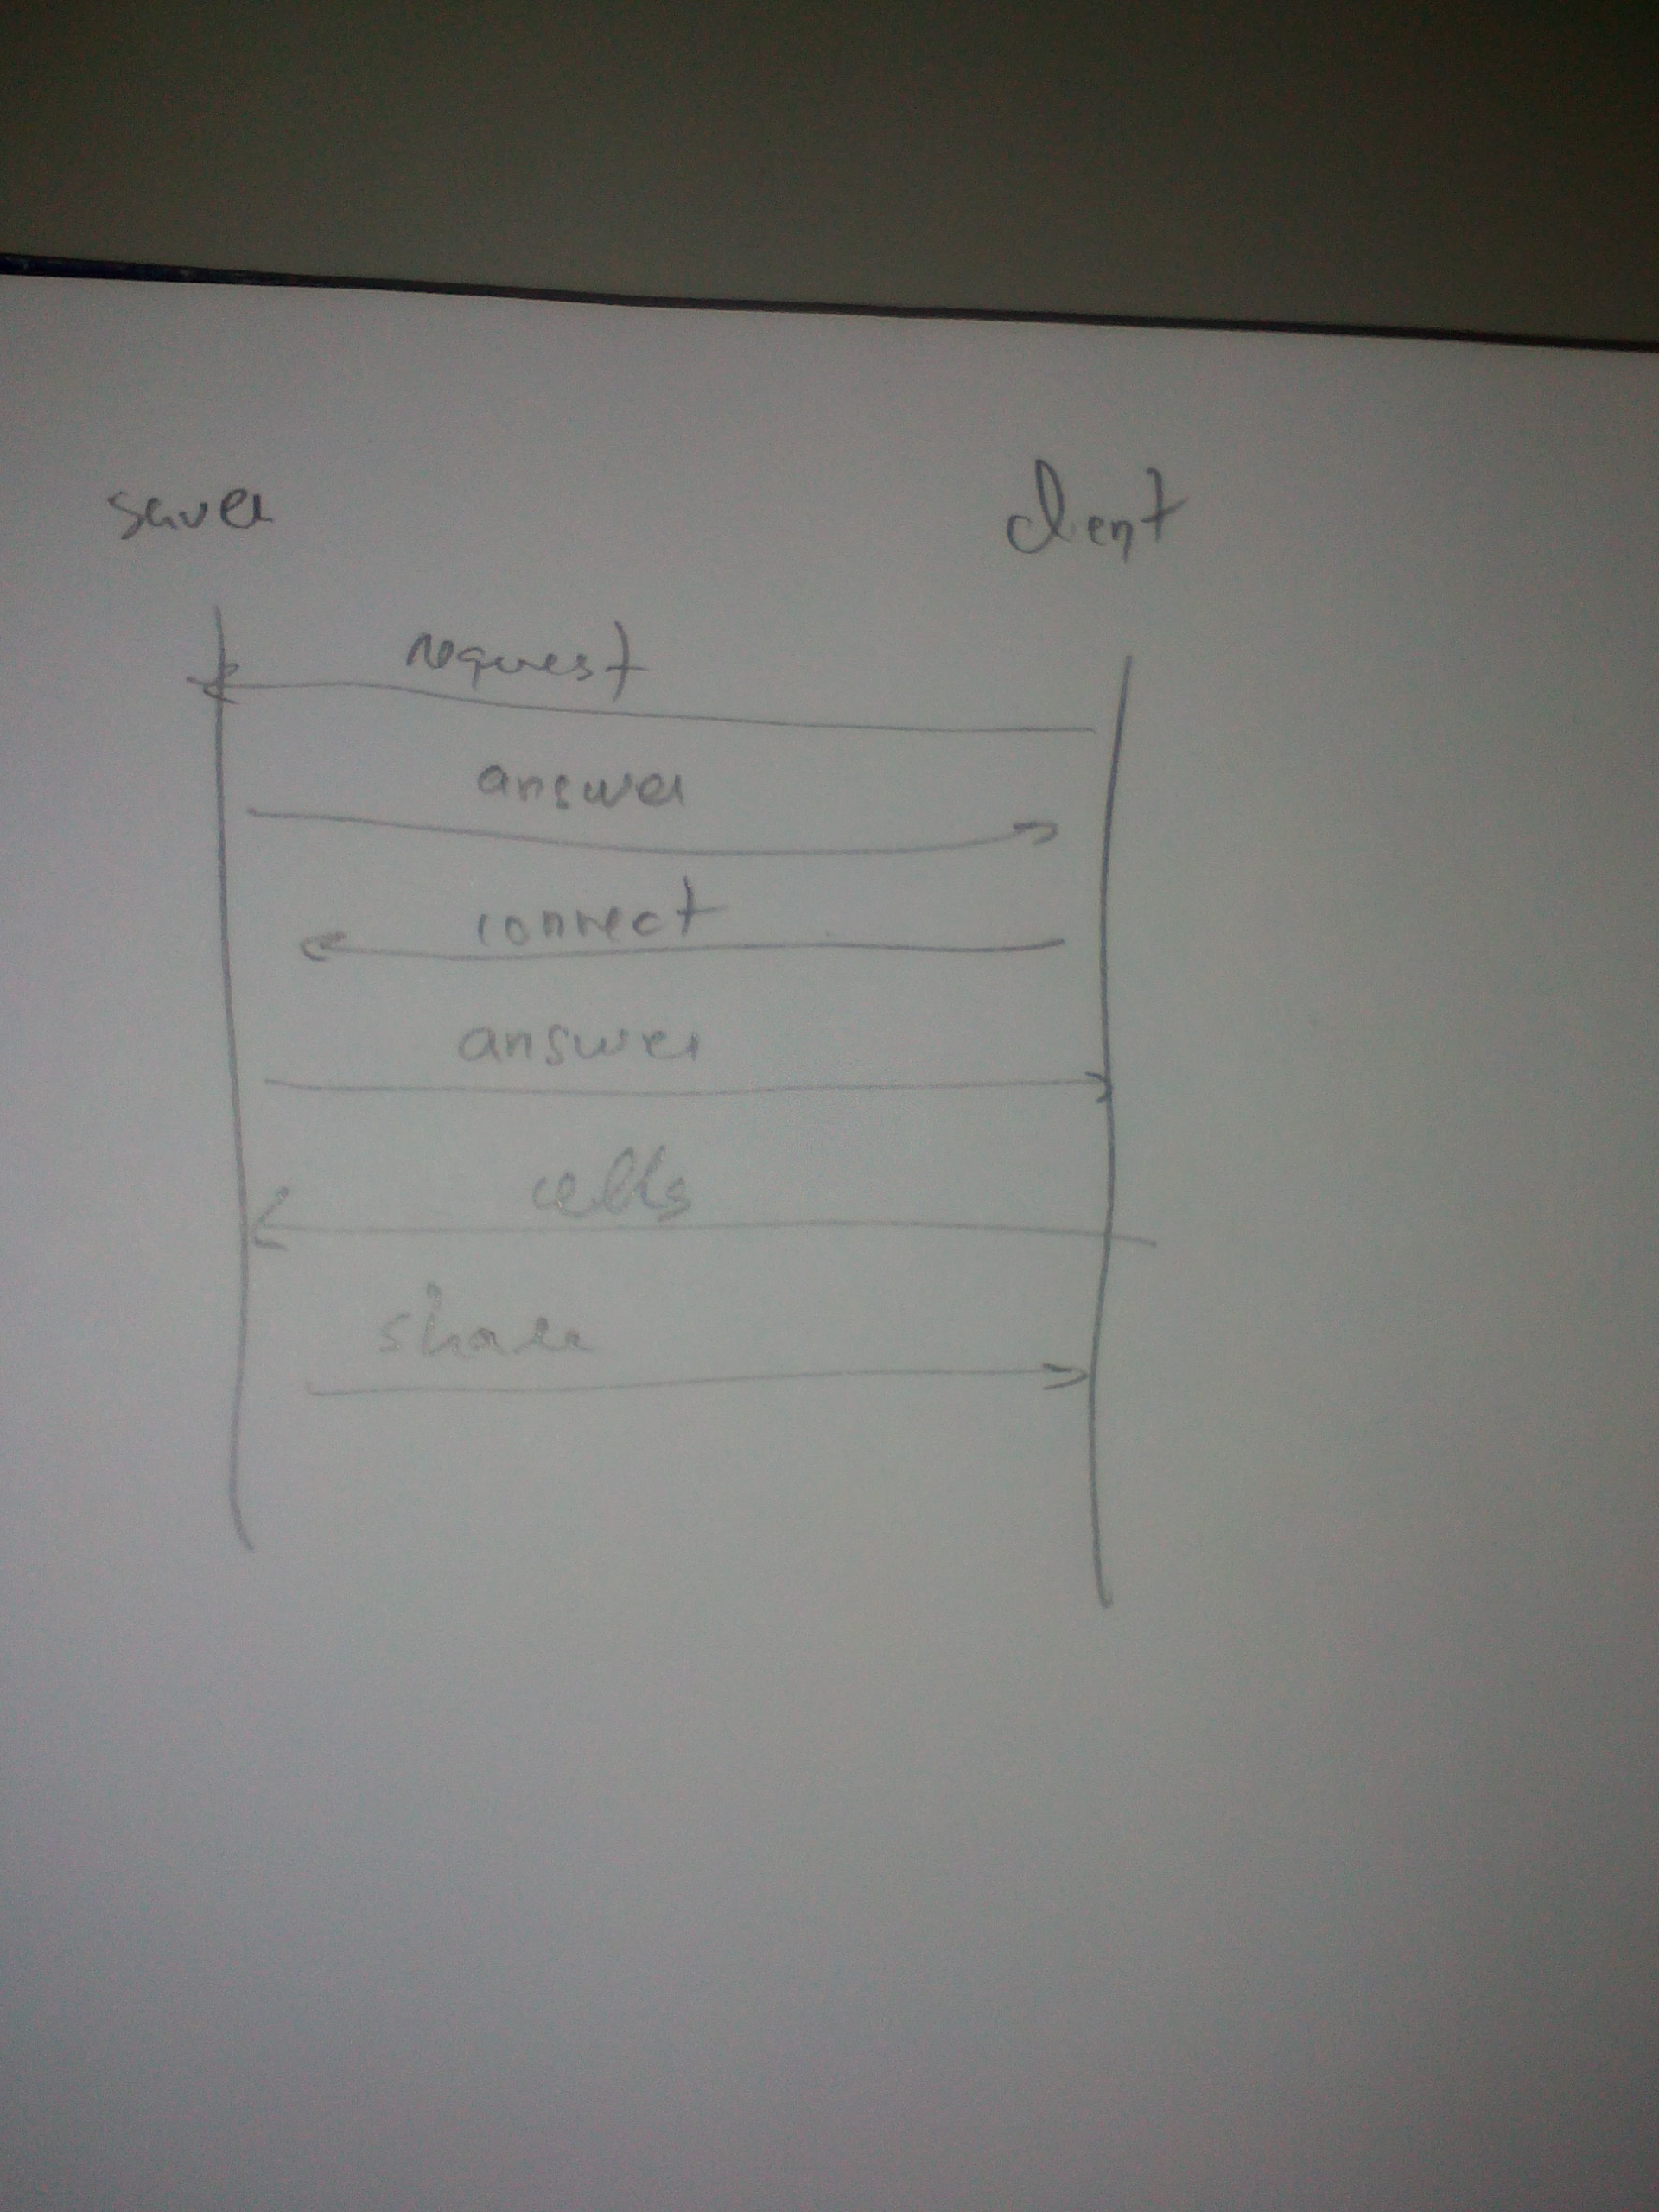 server
client
request
answer
connect
answer
cells
share